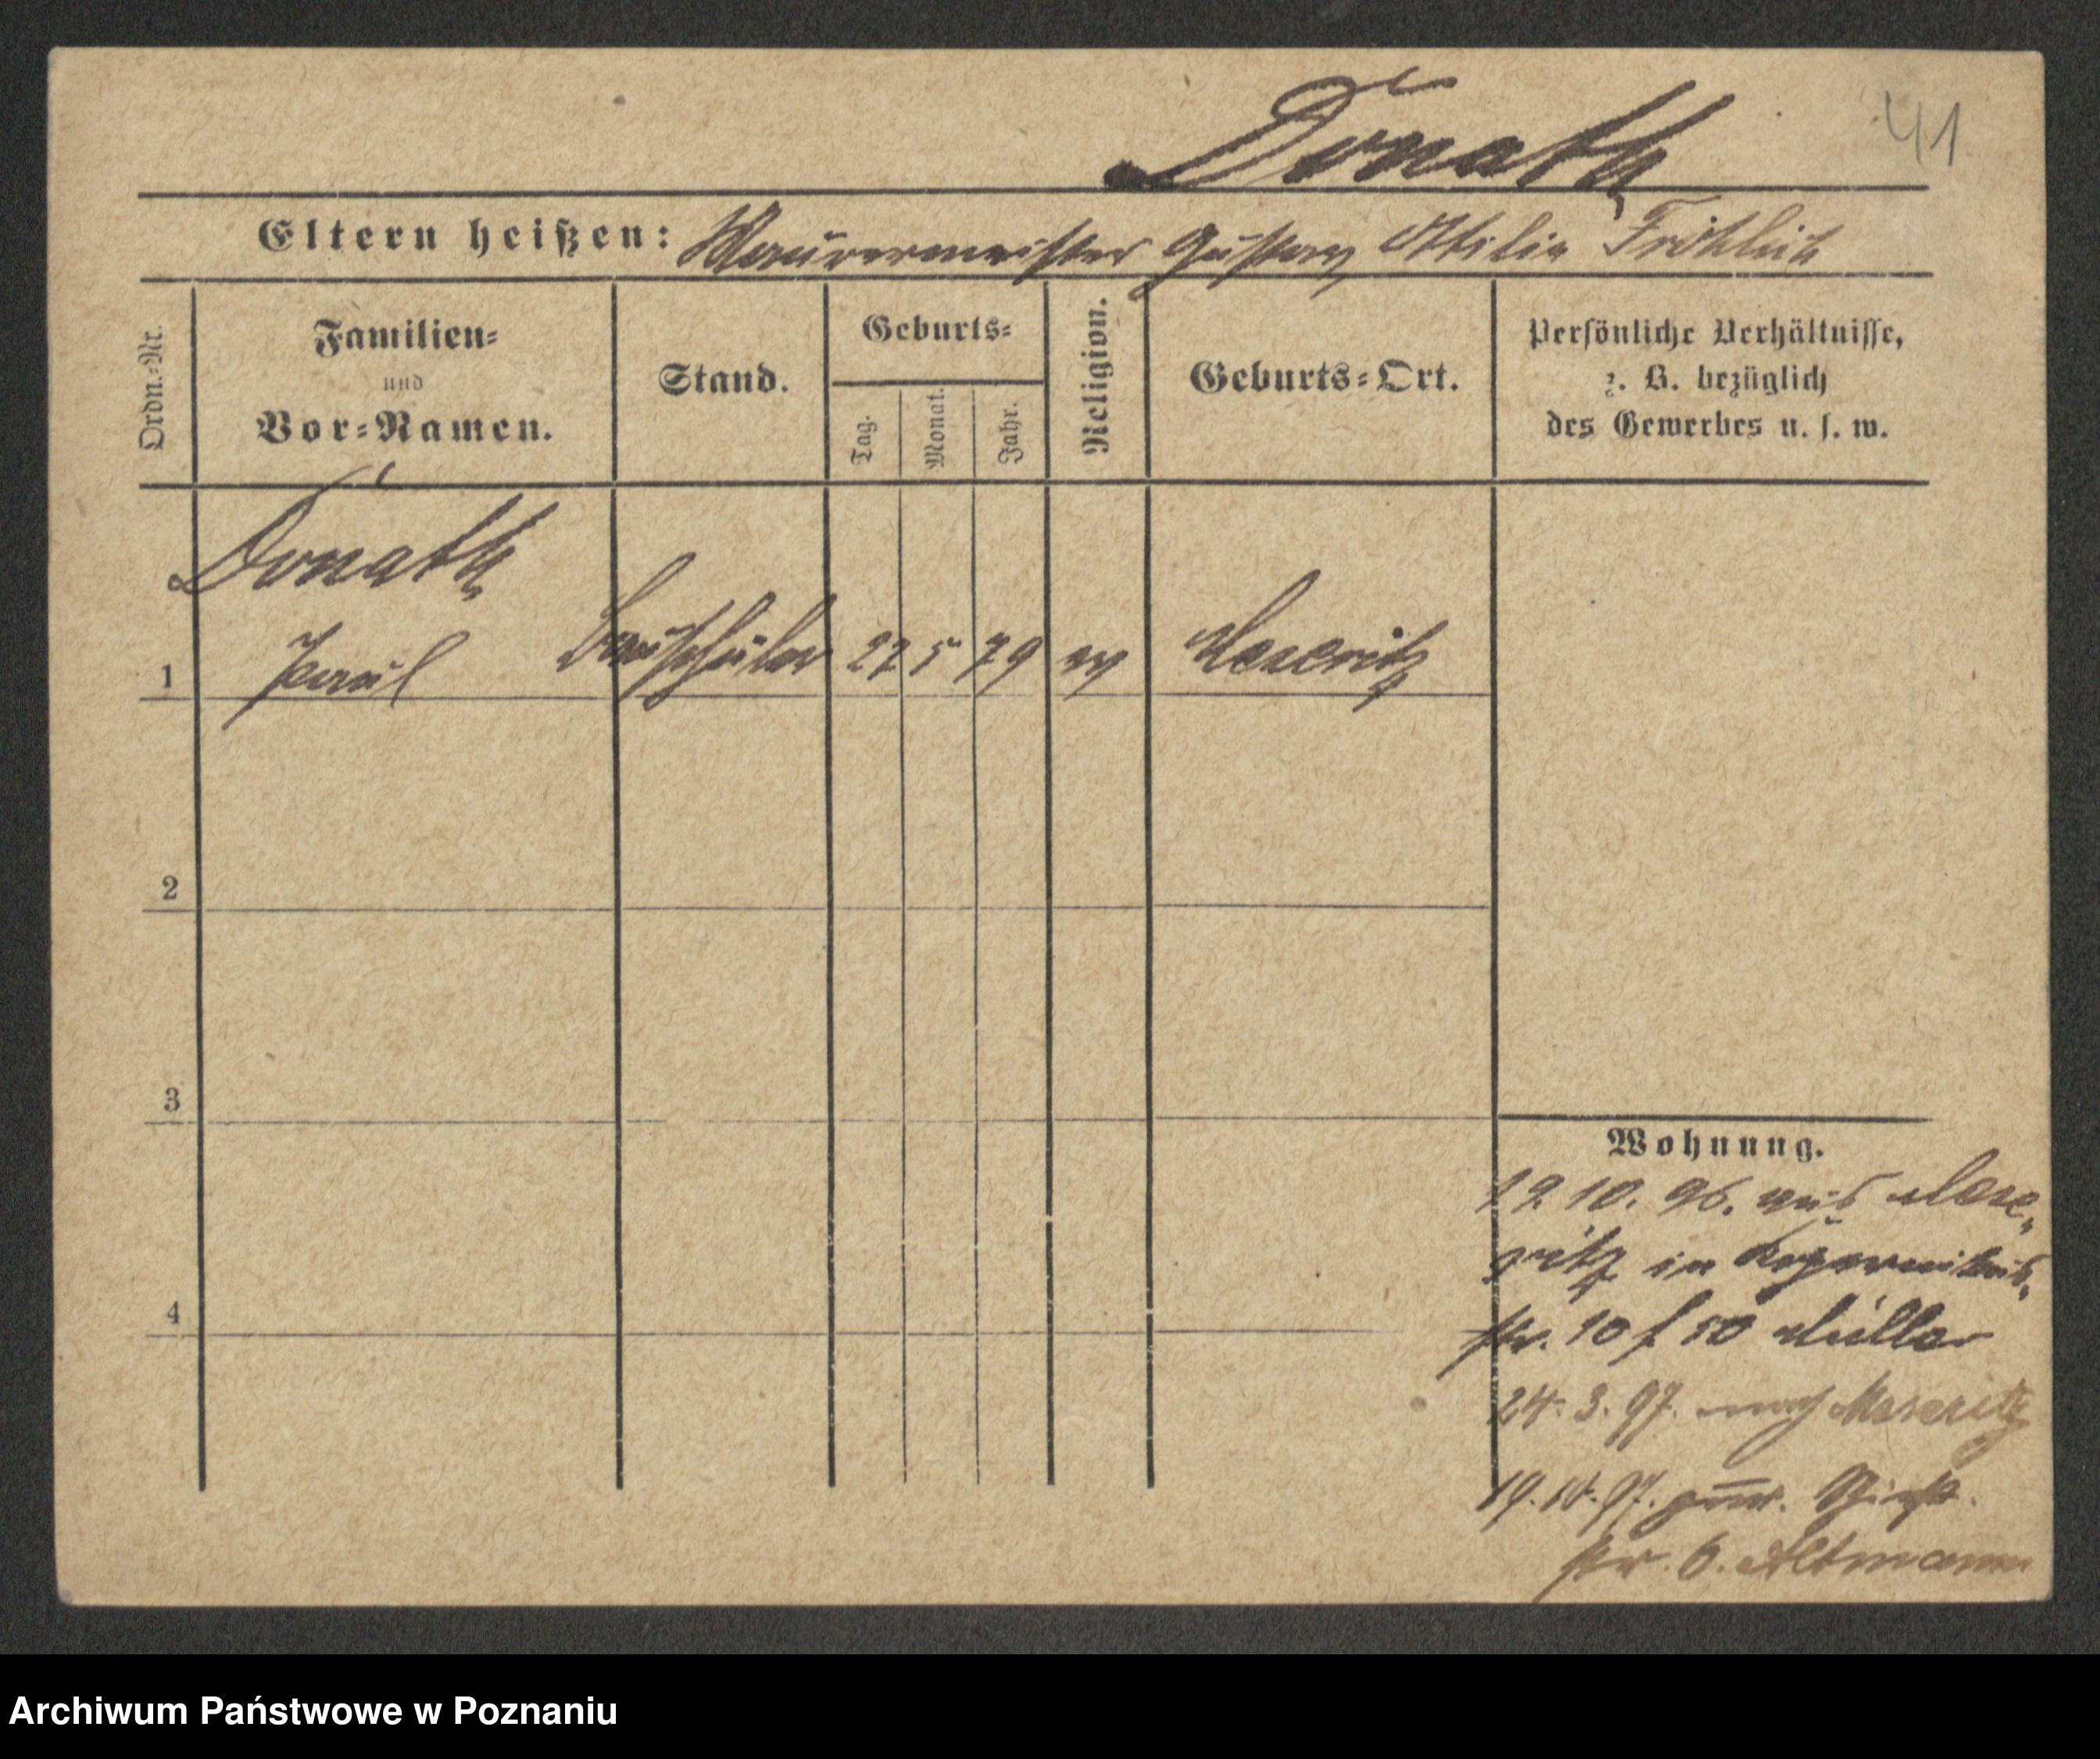 Donath
41
Eltern heißen: Maurermeister Gustav, Ottilie Fröhlich
Ordn.=Nr.
Familien=
und
Vor=Namen.
Stand.
Geburts=
Tag.
Monat.
Jahr.
Religion.
Geburts=Ort.
Persönliche Verhältnisse,
z. B. bezüglich
des Gewerbes u. s. w.
Donath
1 Paul Bauschüler 22 5 79 ev Meseritz
2
3
4
Wohnung.
19. 10. 96. aus Mese-
ritz in
str. 10 f 50 Müller
24. 3. 97. nach Meseritz
19. 10. 97.
str. 6. Altmann
Archiwum Państwowe w Poznaniu